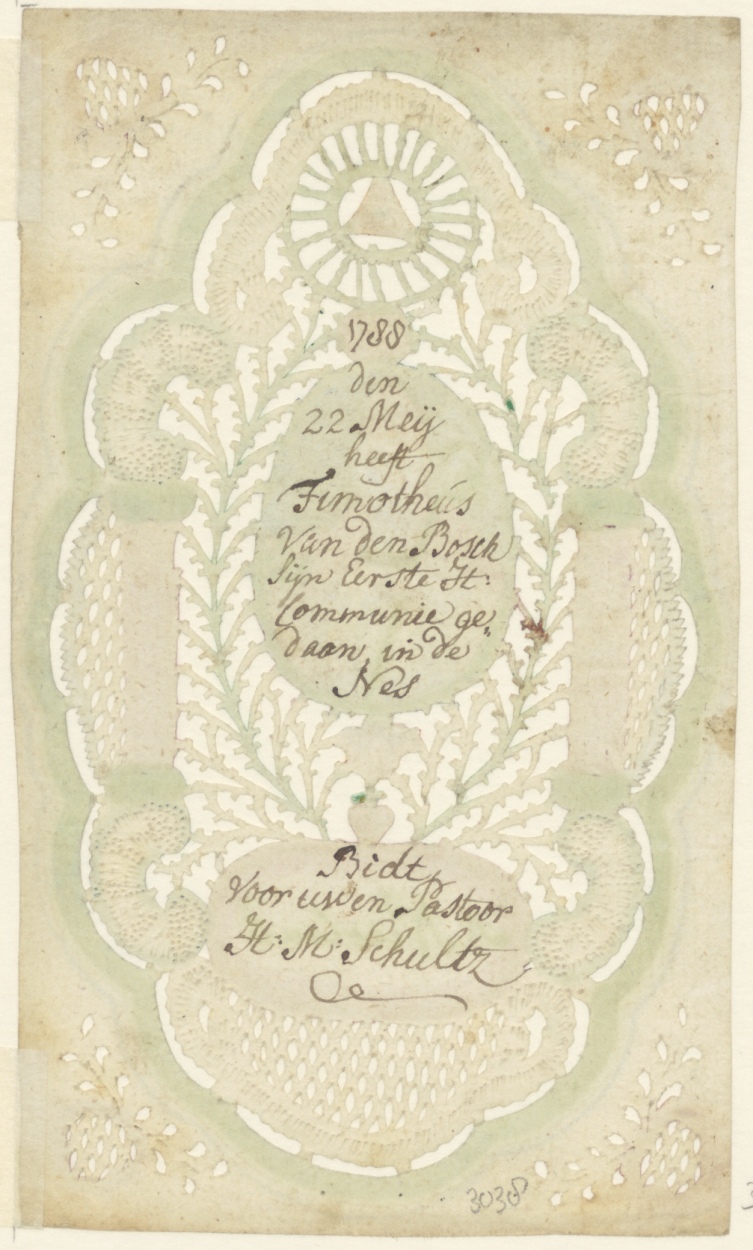 1788
den
22 Meij
heeft
Timotheüs
Van den Bosch
Sijn Eerste H:
Communie ge"
daan, in de
Nes
Bidt
Voor uwen Pastoor
H: M: Schultz
3038